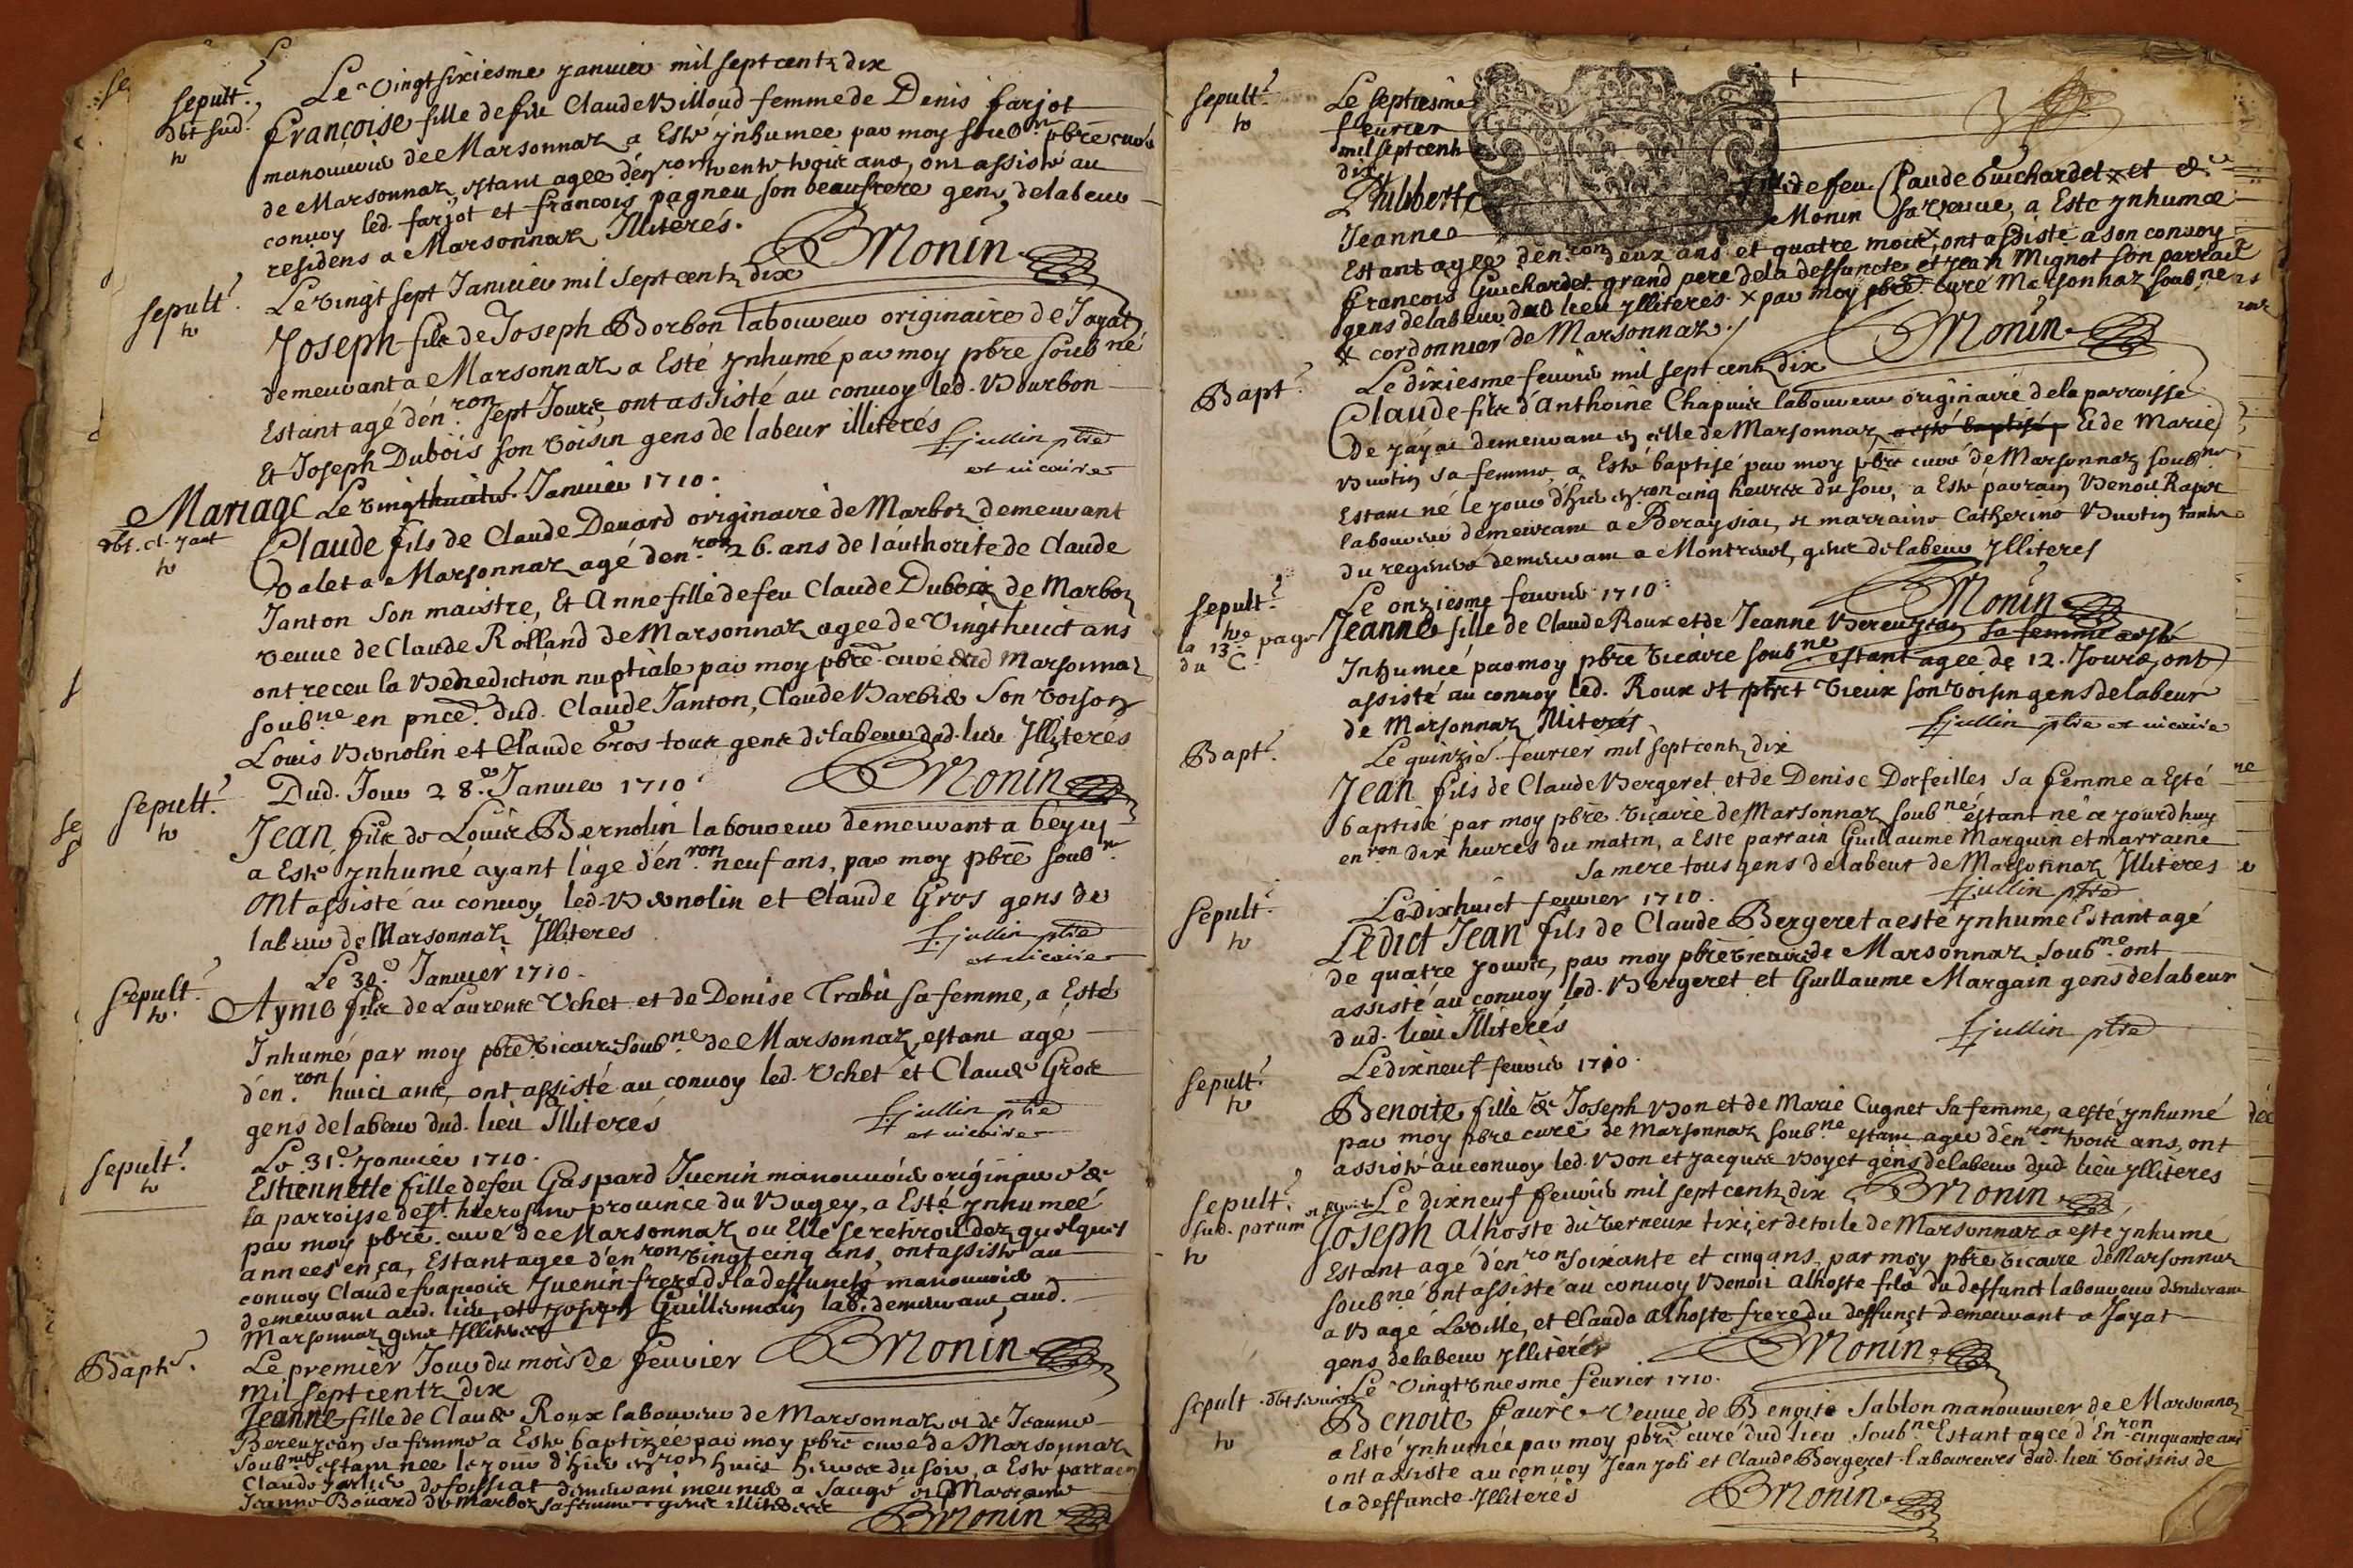 Sepult.e
Le vingt sixiesme Janvier mil sept centz dix
Françoise fille de feu Claude Billoud femme de Denis farjot
manouvrier de Marsonnaz a Esté ynhumee par moy soub.né pbre curé
de Marsonnaz estant agee d'en.ron trente trois ans, ont assisté au
convoy led. farjot et françois pagneu son beaufrere gens de labeur
residens a Marsonnaz Illiterés.
BMonin
Sepult.e
Le vingt sept Janvier mil sept centz dix
Joseph fils de Joseph Borbon laboureur originaire de Jayat
demeurant a Marsonnaz a Esté ynhumé par moy pbre soub.né
Estant agé d'en.ron sept Jours, ont assisté au convoy led. Bourbon
Et Joseph Dubois son voisin gens de labeur illiterés
Fjullin ptre
et vicaire
Mariage Le vingthuict.e Janvier 1710.
Claude fils de Claude Devard originaire de Marboz demeurant
valet a Marsonnaz agé d'en.ron 26. ans de l'authorité de Claude
Janton son maistre, Et Anne fille de feu Claude Dubois de Marboz
veuve de Claude Rolland de Marsonnaz agee de vingt huict ans
ont receu la Benediction nuptiale par moy pbre curé dud Marsonnaz
soub.ne en pnce. dud. Claude Janton, Claude Barbier son voison
Louis Bernolin et Claude Gros tous gens de labeur dud. lieu Illiterés
BMonin
Sepult.e
Dud. Jour 28.e Janvier 1710
Jean fils de Louis Bernolin laboureur demeurant a
a Esté ynhumé ayant l'age d'en.ron neuf ans, par moy pbre soub.né
ont assisté au convoy led. Bernolin et Claude Gros gens de
labeur de Marsonnaz Illiteres
Fjullin ptre
et vicaire
Sepult.e
Le 30.e Janvier 1710.
Aymé fils de Laurent Uchet et de Denise Trabu sa femme, a Esté
Inhumé par moy pbre vicaire soub.né de Marsonnaz, estant agé
d'en.ron huict ans, ont assisté au convoy led. Uchet et Claude Gros
gens de labeur dud. lieu Illiterés
Fjullin ptre
et vicaire
Sepult.e
Le 31.e Janvier 1710.
Estiennette fille de feu Gaspard Juenin manouvrier originaire de
la parroisse de St. hierosme province du Bugey, a Esté ynhumeé
par moy pbre. curé de Marsonnaz ou Elle se retiroit dez quelques
annees en ça, Estant agee d'en.ron vingt cinq ans, ont assisté au
convoy Claude françois Juenin frere de la deffuncte manouvrier
demeurant aud. lieu, et Joseph Guillermain lab. demeurant aud.
Marsonnaz gens Illiteres
BMonin
Bapt.e
Le premier Jour du mois de feuvrier
mil sept centz dix
Jeanne fille de Claude Roux laboureur de Marsonnaz et de Jeanne
Bereyziat sa femme a Esté baptizee par moy pbre curé de Marsonnaz
soub.né estant nee le jour d'hier en.ron huict heures du soir, a Esté parrain
Claude de foissiat demeurant meunier a et Marraine
Jeanne Bouard de Marboz sa femme gens illiteres
BMonin
Sepult.e
Le septiesme
feuvrier
mil sept centz
dix
Philiberte fille de feu Claude Guichardet x et de
Jeanne Monin sa veuve, a Esté ynhumee
Estant agee d'en.ron deux ans et quatre mois x ont assisté a son convoy
françois Guichardet grand pere de la deffuncte et Jean Mignot son parrain
gens de labeur dud lieu ylliteres. x par moy pbre curé Marsonnaz soub.né
x cordonnier de Marsonnaz.
BMonin
Bapt.e
Le dixiesme feuvrier mil sept centz dix
Claude fils d'Anthoine Chapuis laboureur originaire de la parroisse
de Jayat demeurant en celle de Marsonnaz a esté baptisé, Et de Marie
Burtin sa femme, a Esté baptisé par moy pbre curé de Marsonnaz soub.né
Estant né le jour d'hier en.ron cinq heures du soir, a Esté parrain Benoit
laboureur demeurant a Beraysiat, et marraine Catherine Burtin tante
du regeneré demeurant a Montrevel, gens de labeur Ylliteres
BMonin
Sepult.e
la 13.e page
du C.
Le onziesme feuvrier 1710.
Jeanne fille de Claude Roux et de Jeanne Bereyziat sa femme a esté
Inhumeé par moy pbre vicaire soub.ne estant agee de 12. Jours, ont
assisté au convoy led. Roux et Vieux son voisin gens de labeur
de Marsonnaz Illiterés
Fjullin ptre et vicaire
Bapt.e
Le quinzie. fevrier mil sept centz dix
Jean fils de Claude Bergeret et de Denise Dorfeilles sa femme a Esté
baptisé par moy pbre. vicaire de Marsonnaz soub.né estant né ce jourdhuy
en.ron dix heures du matin, a Esté parrain Guillaume Marguin et marraine
sa mere tous gens de labeur de Marsonnaz Illiteres
Fjullin ptre
Sepult.e
Le dixhuict fevrier 1710.
Ledict Jean fils de Claude Bergeret a esté ynhumé Estant agé
de quatre jours, par moy pbre vicaire de Marsonnaz soub.né ont
assisté au convoy led. Bergeret et Guillaume Margain gens de labeur
dud. lieu Illiterés
Fjullin ptre
Sepult.e
Le dixneuf feuvrier 1710.
Benoite fille de Joseph Bon et de Marie Cugnet sa femme, a esté ynhumé
par moy pbre curé de Marsonnaz soub.ne estant agee d'en.ron trois ans, ont
assisté au convoy led. Bon et Jacques Boyet gens de labeur dud. lieu ylliteres
BMonin
Sepult.e
Le dixneuf feuvrier mil sept centz dix
Joseph Alhoste du verneux tixier de toile de Marsonnaz a esté ynhumé
Estant agé d'en.ron soixante et cinq ans, par moy pbre vicaire de Marsonnaz
soub.né ont assisté au convoy Benoit Alhoste fils du deffunct laboureur demeurant
a Bagé Laville, et Claude Alhoste frere du deffunct demeurant a Jayat
gens de labeur yllitérés
BMonin
Sepult
Le vingt uniesme fevrier 1710.
Benoite faure veuve de Benoist Sablon manouvrier de Marsonnaz
a Esté ynhumée par moy pbre curé dud lieu soub.né Estant agee d'En.ron cinquante ans
ont assisté au convoy Jean Joli et Claude Bergeret laboureurs dud. lieu voisins de
la deffuncte Illiterés
BMonin